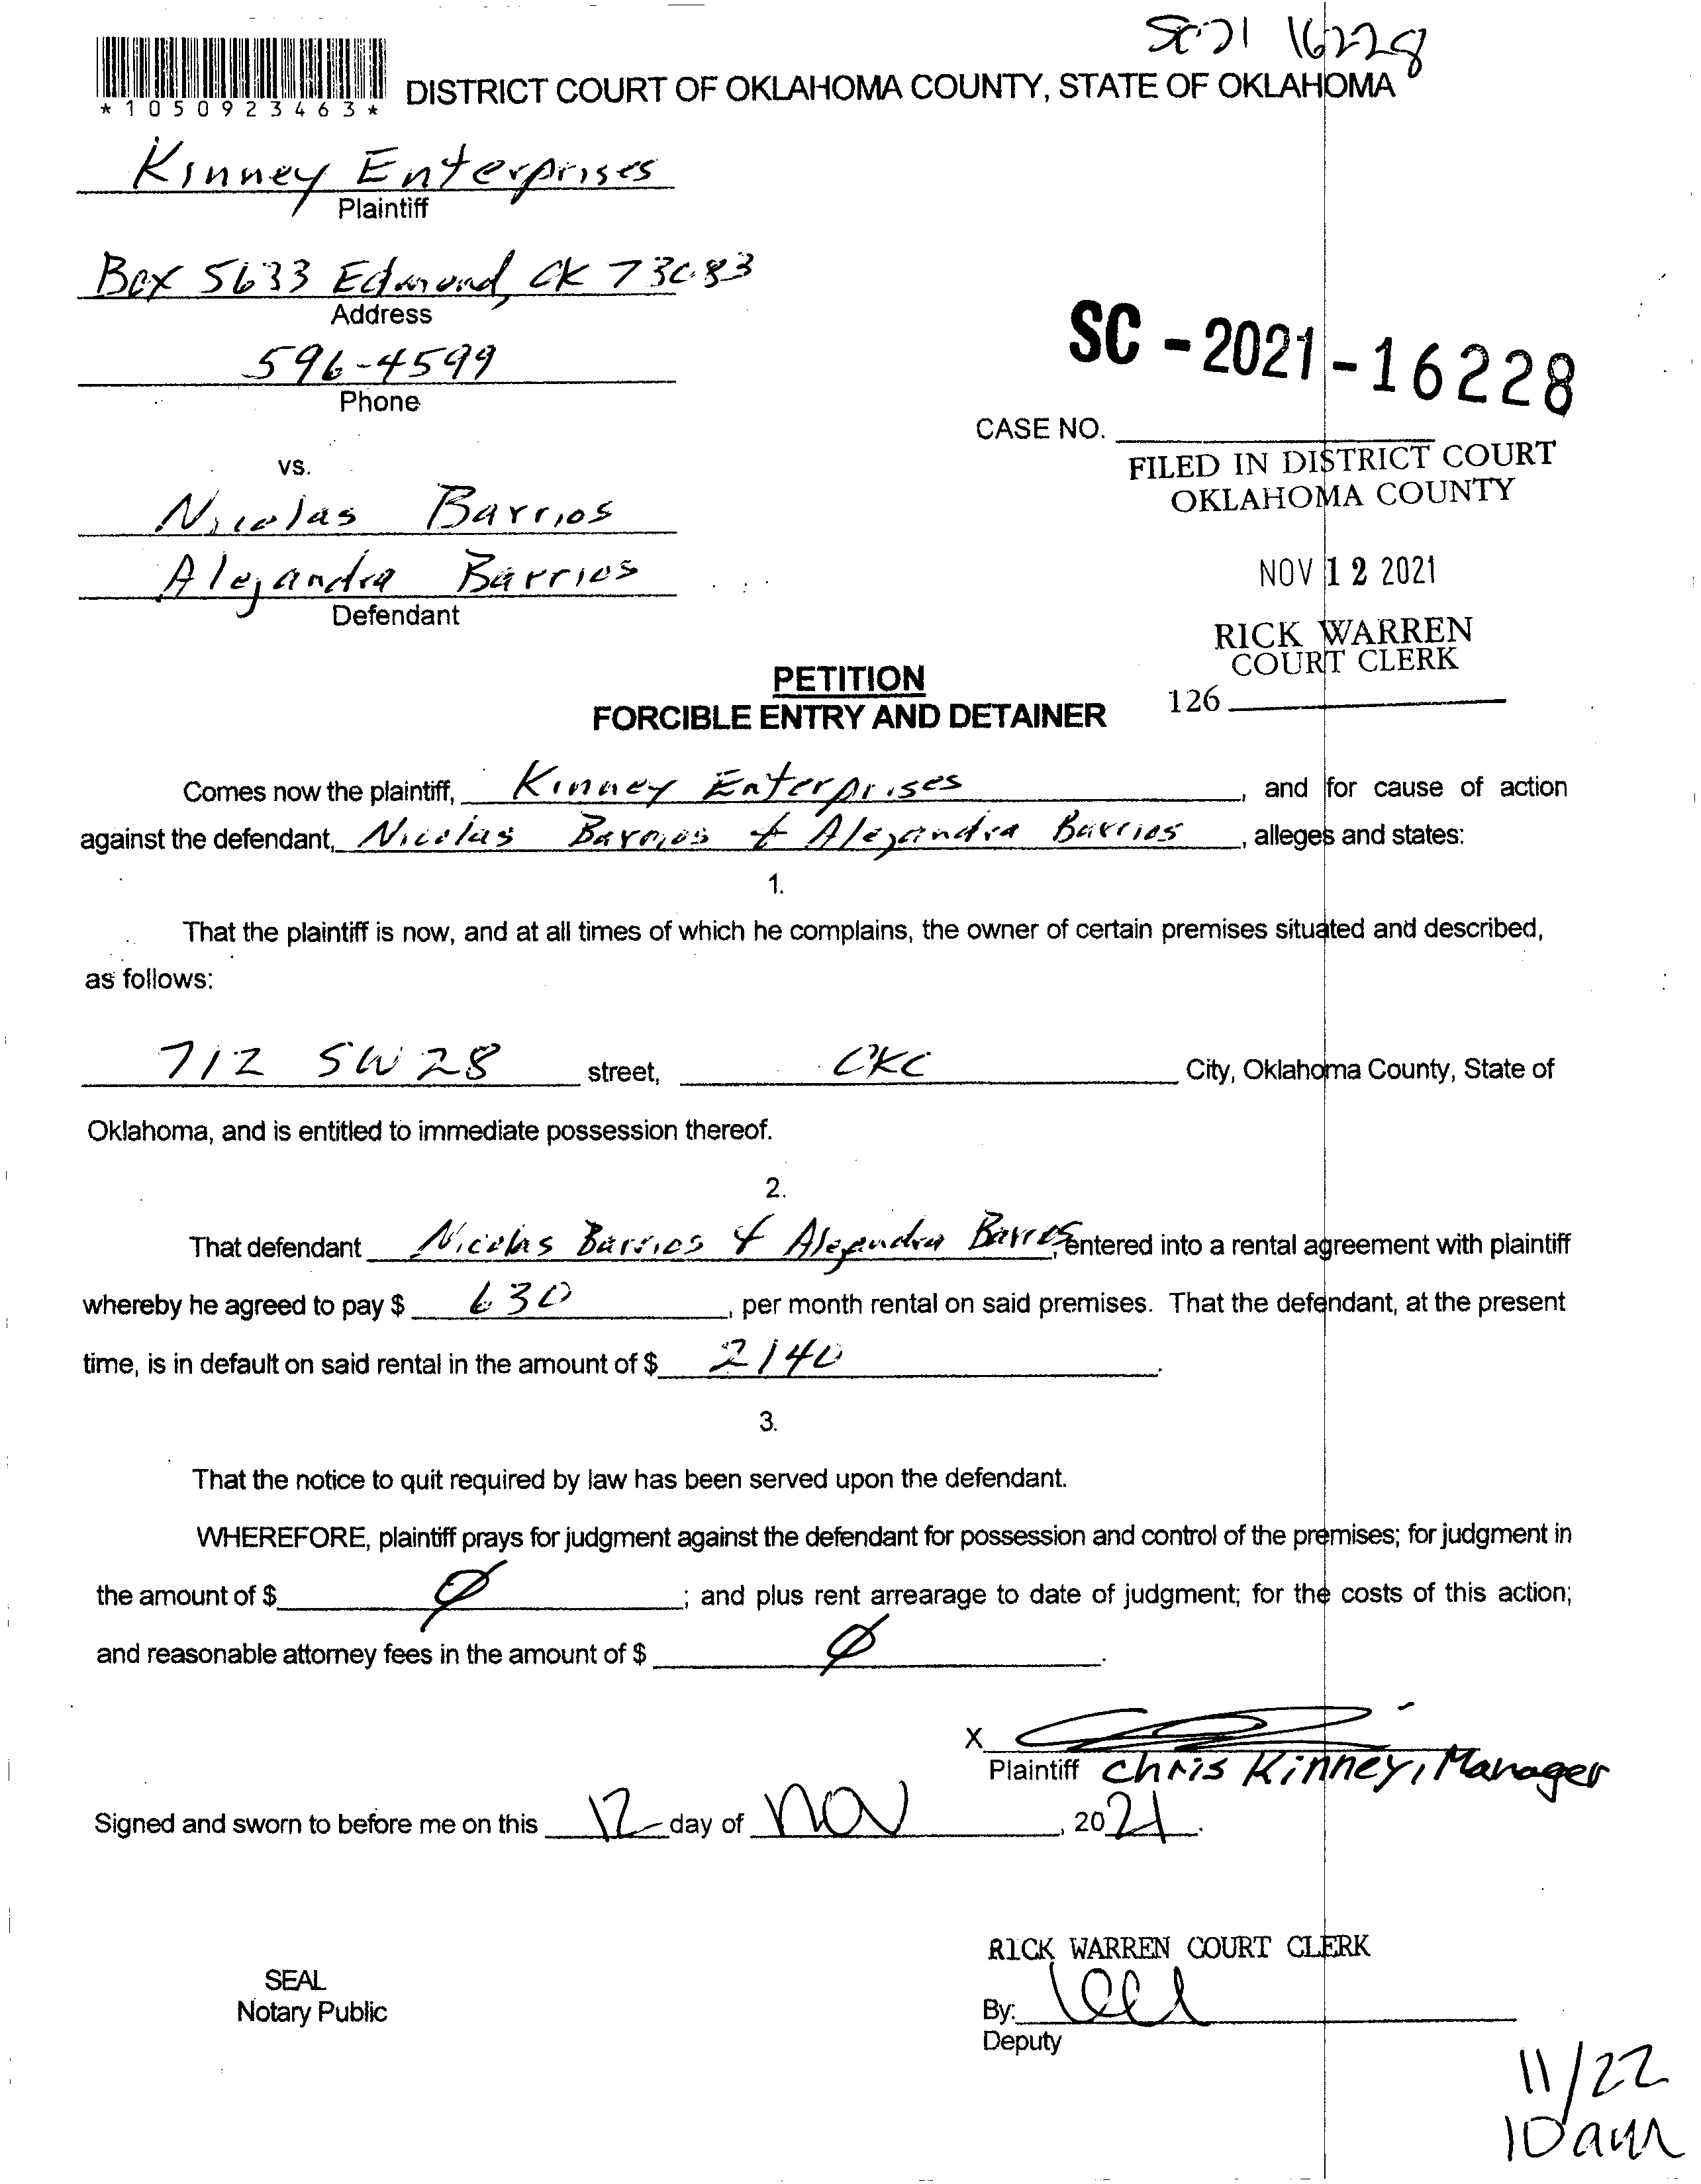 SC21 16228
*1050923463*
DISTRICT COURT OF OKLAHOMA COUNTY, STATE OF OKLAHOMA
Kinney Enterprises
Plaintiff
Box 5633 Edmond, OK 73083
Address
596-4599
Phone
SC - 2021 - 16228
CASE NO.
FILED IN DISTRICT COURT
OKLAHOMA COUNTY
vs.
Nicolas Barrios
Alejandra Barrios
Defendant
NOV 12 2021
RICK WARREN
COURT CLERK
126
PETITION
FORCIBLE ENTRY AND DETAINER
Comes now the plaintiff, Kinney Enterprises, and for cause of action
against the defendant, Nicolas Barrios & Alejandra Barrios, alleges and states:
1.
That the plaintiff is now, and at all times of which he complains, the owner of certain premises situated and described,
as follows:
712 SW 28 street, OKC City, Oklahoma County, State of
Oklahoma, and is entitled to immediate possession thereof.
2.
That defendant Nicolas Barrios & Alejandra Barrios, entered into a rental agreement with plaintiff
whereby he agreed to pay $ 630, per month rental on said premises. That the defendant, at the present
time, is in default on said rental in the amount of $ 2140.
3.
That the notice to quit required by law has been served upon the defendant.
WHEREFORE, plaintiff prays for judgment against the defendant for possession and control of the premises; for judgment in
the amount of $ Ø; and plus rent arrearage to date of judgment; for the costs of this action;
and reasonable attorney fees in the amount of $ Ø.
X
Plaintiff Chris Kinney, Manager
Signed and sworn to before me on this 12 day of NOV, 2021.
RICK WARREN COURT CLERK
SEAL
Notary Public
By:
Deputy
11/22
10am